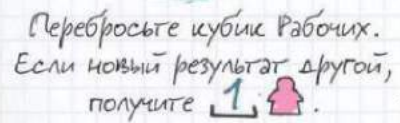 Перебросьте кубик Рабочих.
Если новый результат другой,
получите 1.